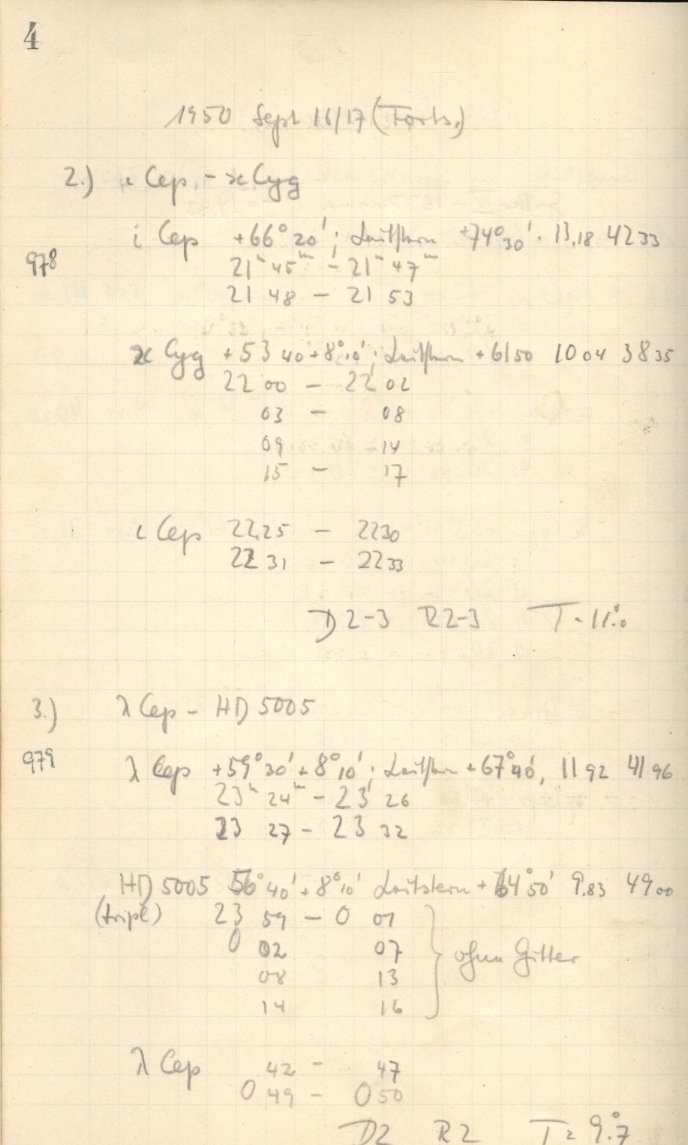 4
1950 Sept 16/17 (Forts.)
2.) ι Cep - ϰ Cyg
ι Cep +66° 20'; Leitstern +74° 30'. 13,18 42 33
978
21ʰ 45ᵐ - 21ʰ 47ᵐ
21 48 - 21 53
ϰ Cyg +53 40 + 8° 10'; Leitstern + 61 50 10 04 38 35
22 00 - 22 02
03 - 08
09 - 14
15 - 17
ι Cep 22 25 - 22 30
22 31 - 22 33
D 2-3 R 2-3
3.) λ Cep - HD 5005
979
λ Cep +59° 30' + 8° 10'; Leitstern + 67° 40', 11 92 41 96
23ʰ 24ᵐ - 23 26
23 27 - 23 32
HD 5005 56° 40' + 8° 10' Leitstern + 64° 50' 9.83 49 00
(tripl) 23 59 - 0 01
0 02 07 } ohne Gitter
08 13
14 16
λ Cep 42 - 47
0 49 - 0 50
D2 R2 T = 9.°7